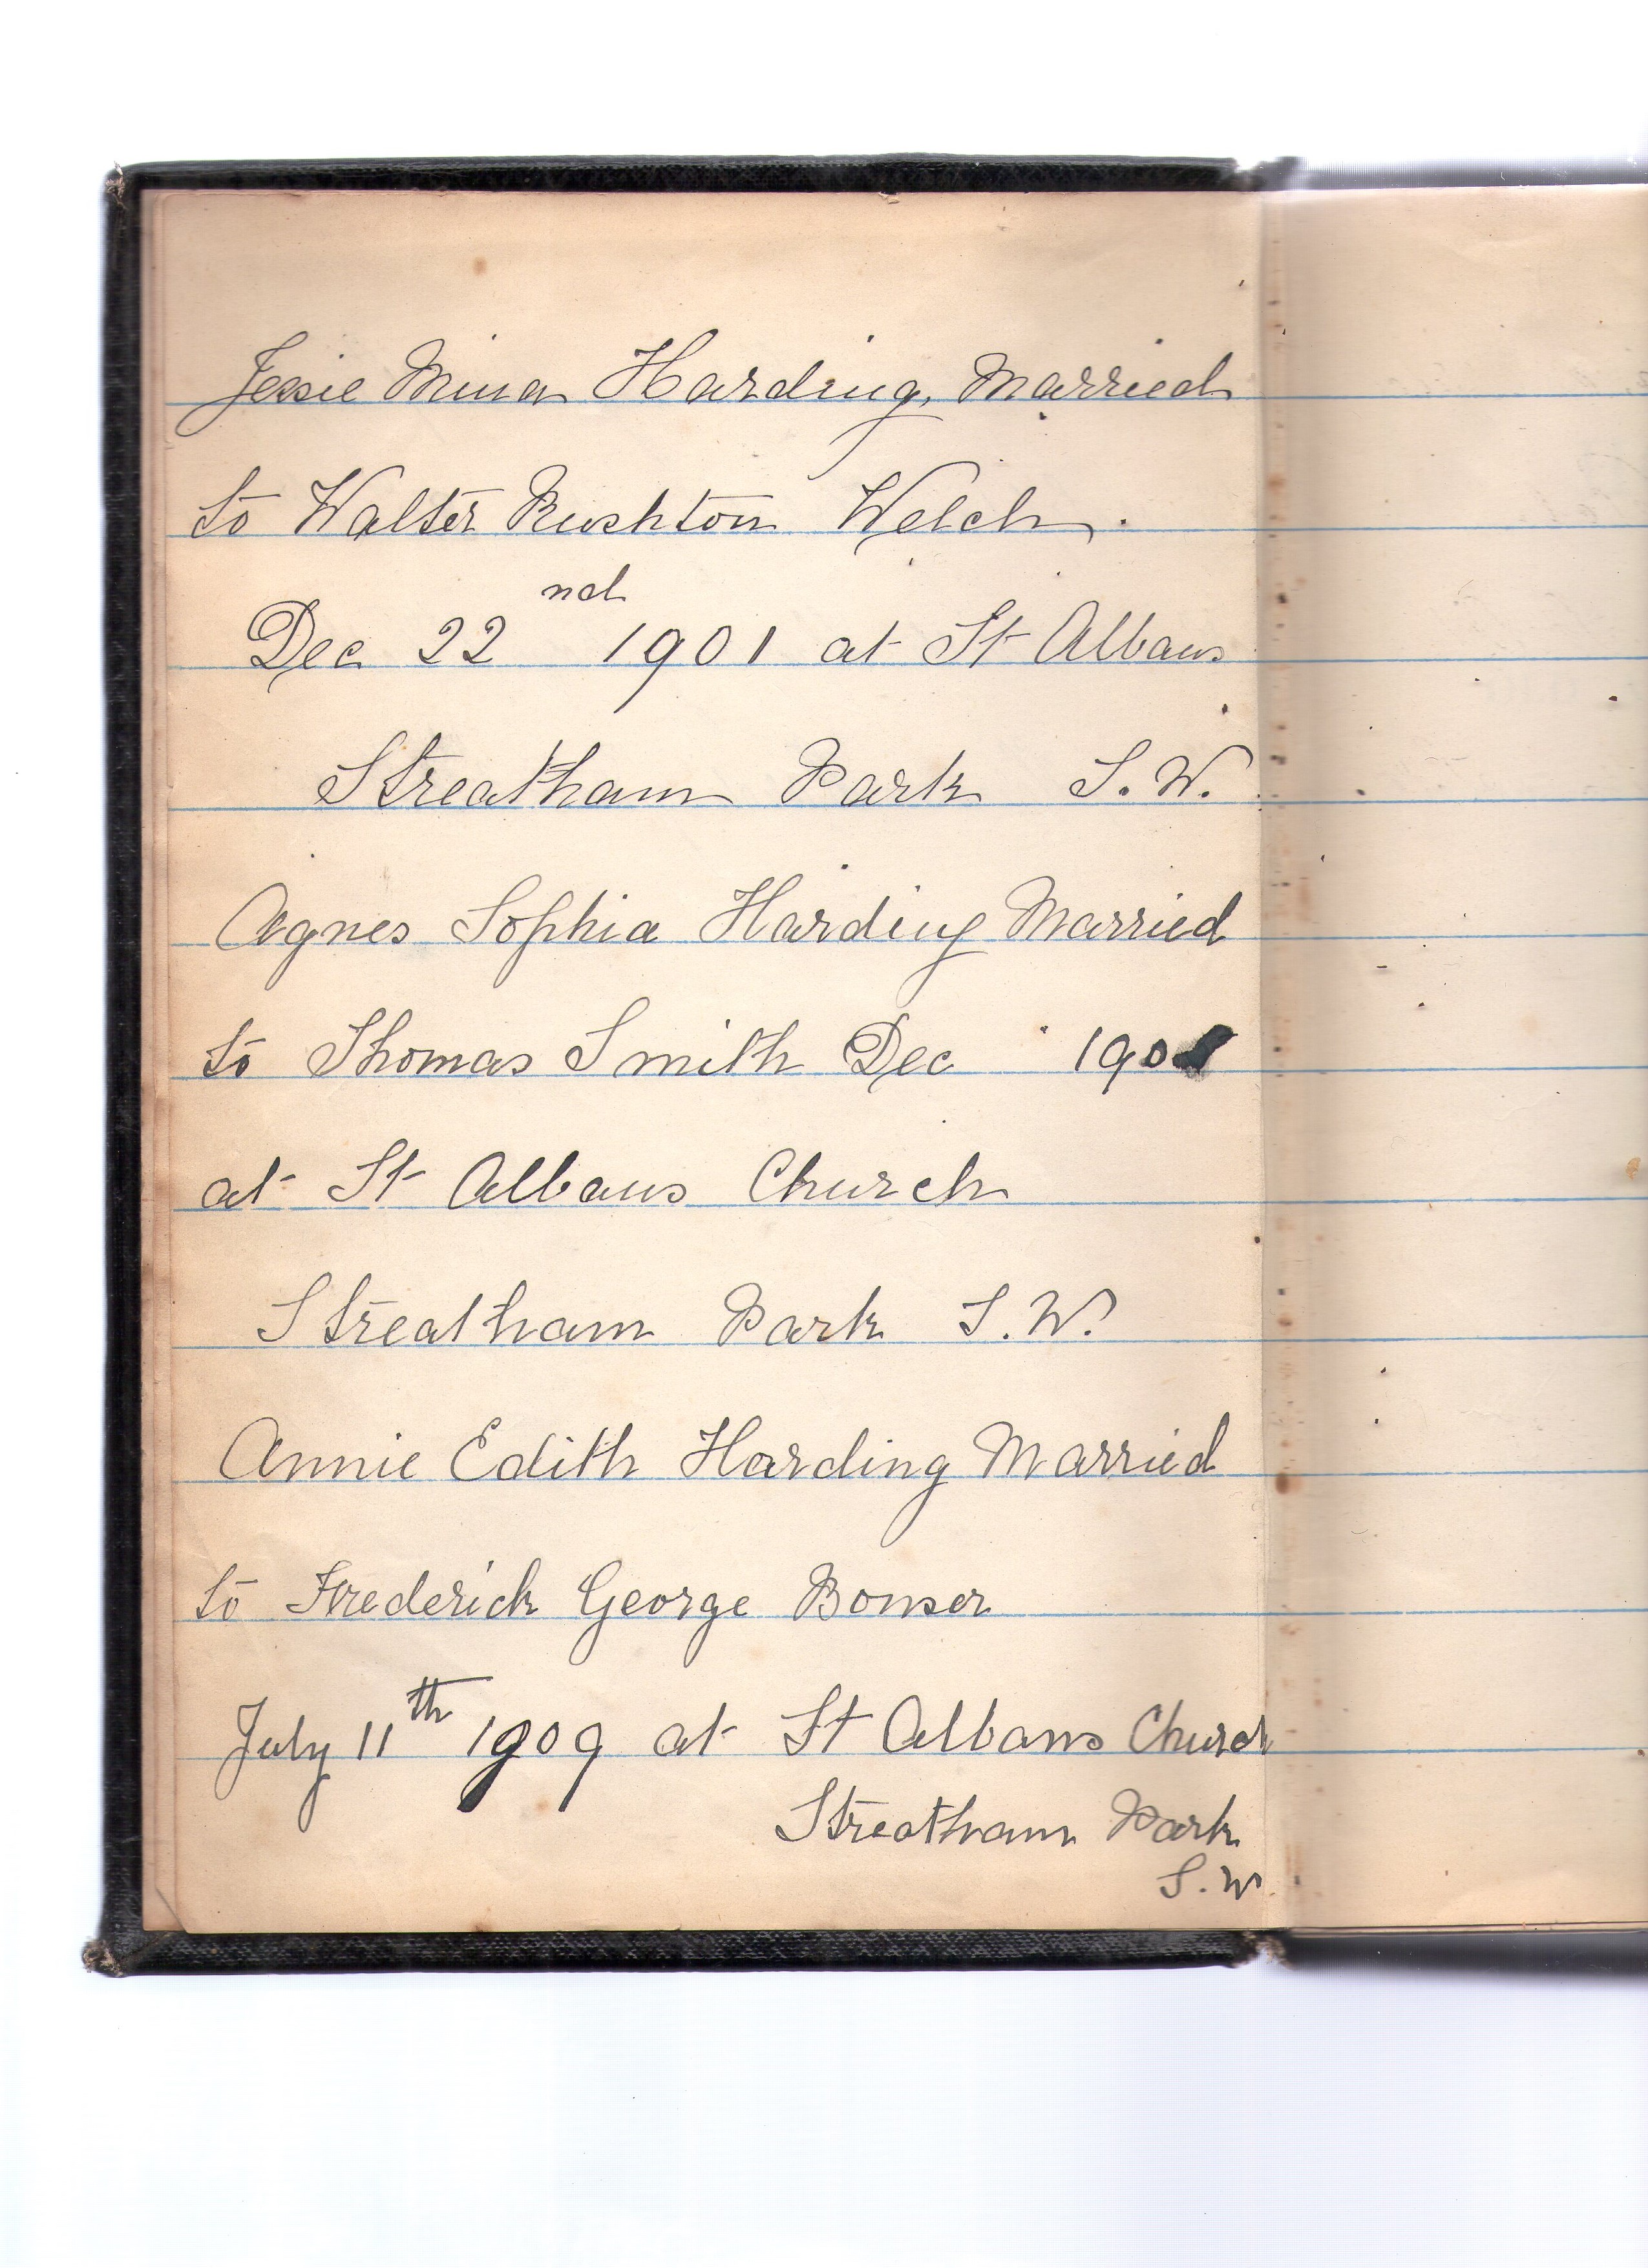 Jessie Mina Harding, Married
to Walter Rushton Welch.
Dec 22nd 1901 at St Albans
Streatham Park S.W.
Agnes Sophia Harding Married
to Thomas Smith Dec
at St Albans Church
Streatham Park S.W.
Annie Edith Harding Married
to Frederick George Bonser
July 11th 1909 at St Albans Church
Streatham Park
S.W